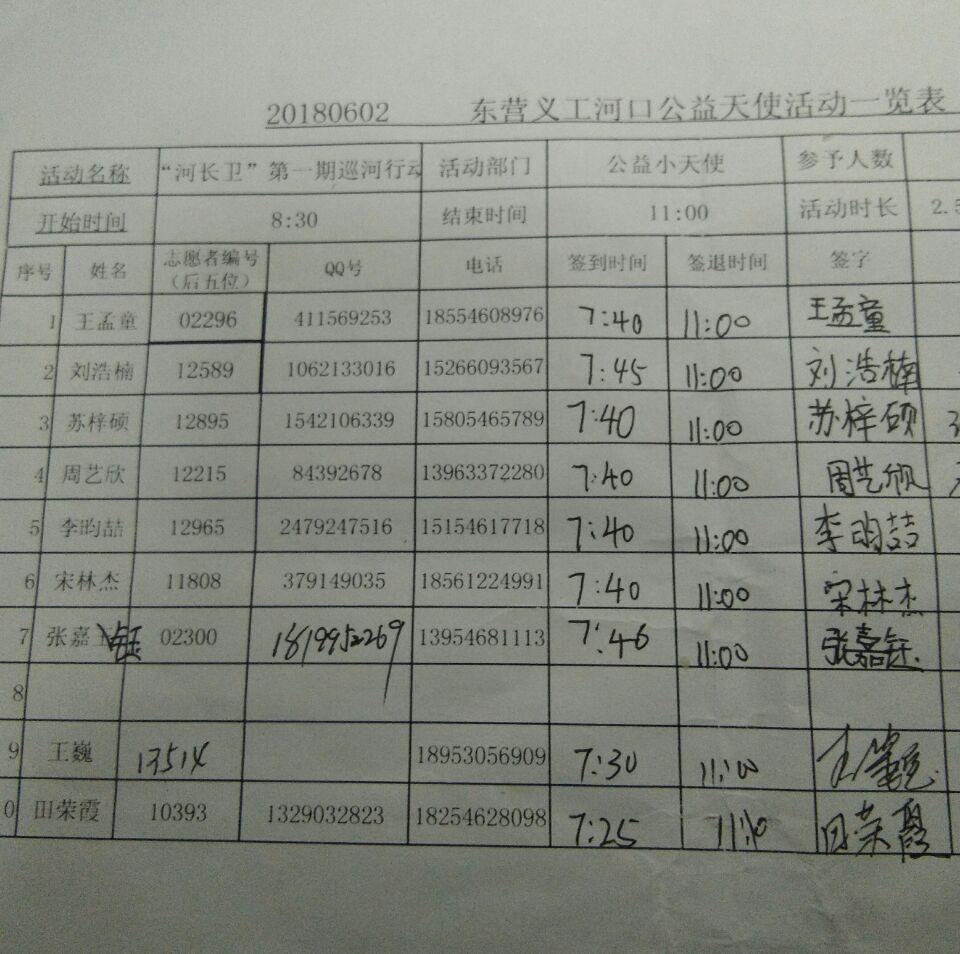 20180602 东营义工河口公益天使活动一览表
活动名称 “河长卫”第一期巡河行动 活动部门 公益小天使 参予人数
开始时间 8:30 结束时间 11:00 活动时长 2.5
序号 姓名 志愿者编号（后五位） QQ号 电话 签到时间 签退时间 签字
1 王孟童 02296 411569253 18554608976 7:40 11:00 王孟童
2 刘浩楠 12589 1062133016 15266093567 7:45 11:00 刘浩楠
3 苏梓硕 12895 1542106339 15805465789 7:40 11:00 苏梓硕
4 周艺欣 12215 84392678 13963372280 7:40 11:00 周艺欣
5 李昀喆 12965 2479247516 15154617718 7:40 11:00 李昀喆
6 宋林杰 11808 379149035 18561224991 7:40 11:00 宋林杰
7 张嘉钰 02300 1819952269 13954681113 7:46 11:00 张嘉钰
8
9 王巍 13514 18953056909 7:30 11:00 王巍
0 田荣霞 10393 1329032823 18254628098 7:25 11:10 田荣霞